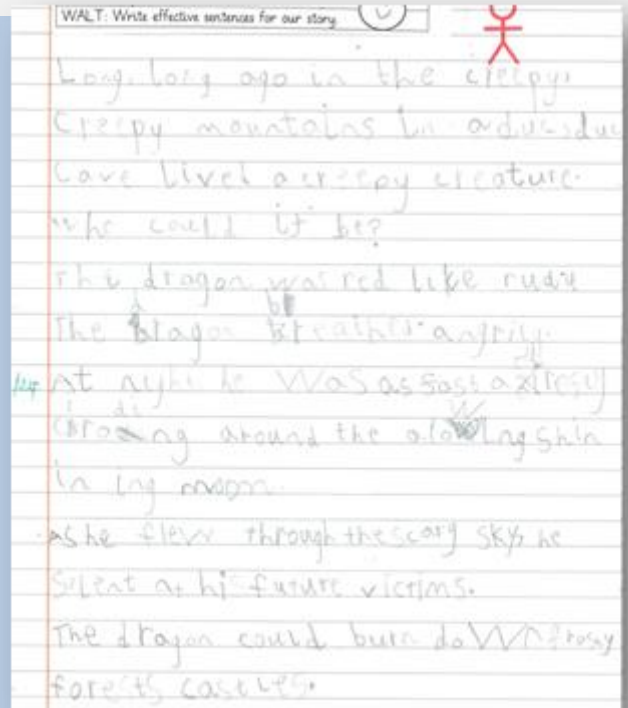 WALT: Write effective sentences for our story
Long, long ago in the creepy,
Creepy mountains in a
Cave lived a creepy creature.
who could it be?
The dragon was red like
The dragon breathes angrily.
At night he was as fast a
around the glowing shin
in ing moon.
As he flew through the scary sky, he
silent at his future victims.
The dragon could burn down frosty
forests castles.